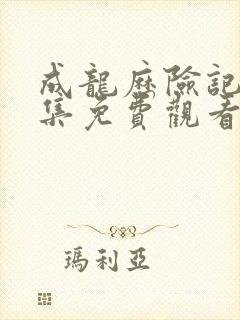 成龍歷險記
集免費觀看
瑪利亞